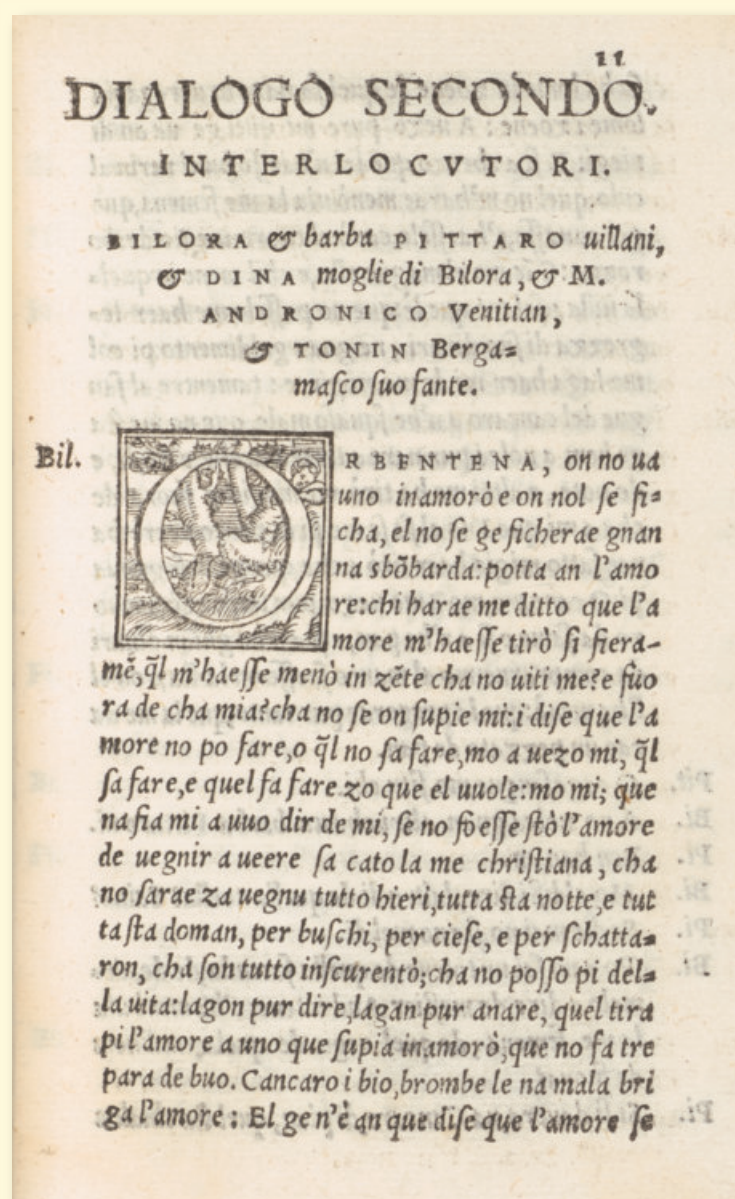 11
DIALOGO SECONDO.
INTERLOCVTORI.
BILORA & barba PITTARO uillani,
& DINA moglie di Bilora, & M.
ANDRONICO Venitian,
& TONIN Berga=
maſco ſuo fante.
Bil. ORBENTENA, on no ua
uno inamorò e on nol ſe fi=
cha, el no ſe ge ficherae gnan
na sbõbarda: potta an l'amo
re: chi harae me ditto que l'a
more m'haeſſe tirò ſi fiera-
mẽ, q̃l m'haeſſe menò in zẽte cha no uiti me? e fuo
ra de cha mia? cha no ſe on ſupie mi: i diſe que l'a
more no po fare, o q̃l no ſa fare, mo a uezo mi, q̃l
ſa fare, e quel fa fare zo que el uuole: mo mi; que
na fia mi a uuo dir de mi, ſe no foeſſe ſtò l'amore
de uegnir a ueere ſa cato la me chriſtiana, cha
no ſarae za uegnu tutto hieri, tutta ſta notte, e tut
ta ſta doman, per buſchi, per cieſe, e per ſchatta=
ron, cha ſon tutto inſcurentò; cha no poſſo pi del=
la uita: lagon pur dire, lagan pur anare, quel tira
pi l'amore a uno que ſupia inamorò, que no fa tre
para de buo. Cancaro i bio, brombe le na mala bri
ga l'amore: El ge n'è an que diſe que l'amore ſe